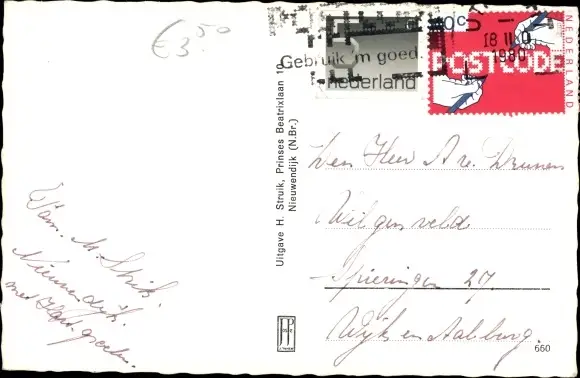 €3,50
Gebruik 'm goed
nederland
18 II 0
1980
POSTCODE
NEDERLAND
Uitgave H. Struik, Prinses Beatrixlaan 10
Nieuwendijk (N.Br.)
Den Heer A v. Drunen
Wilgenveld
Spieringen 27.
Wijk en Aalburg.
Van. M. Struik.
Nieuwendijk.
met Hart. groeten.
660